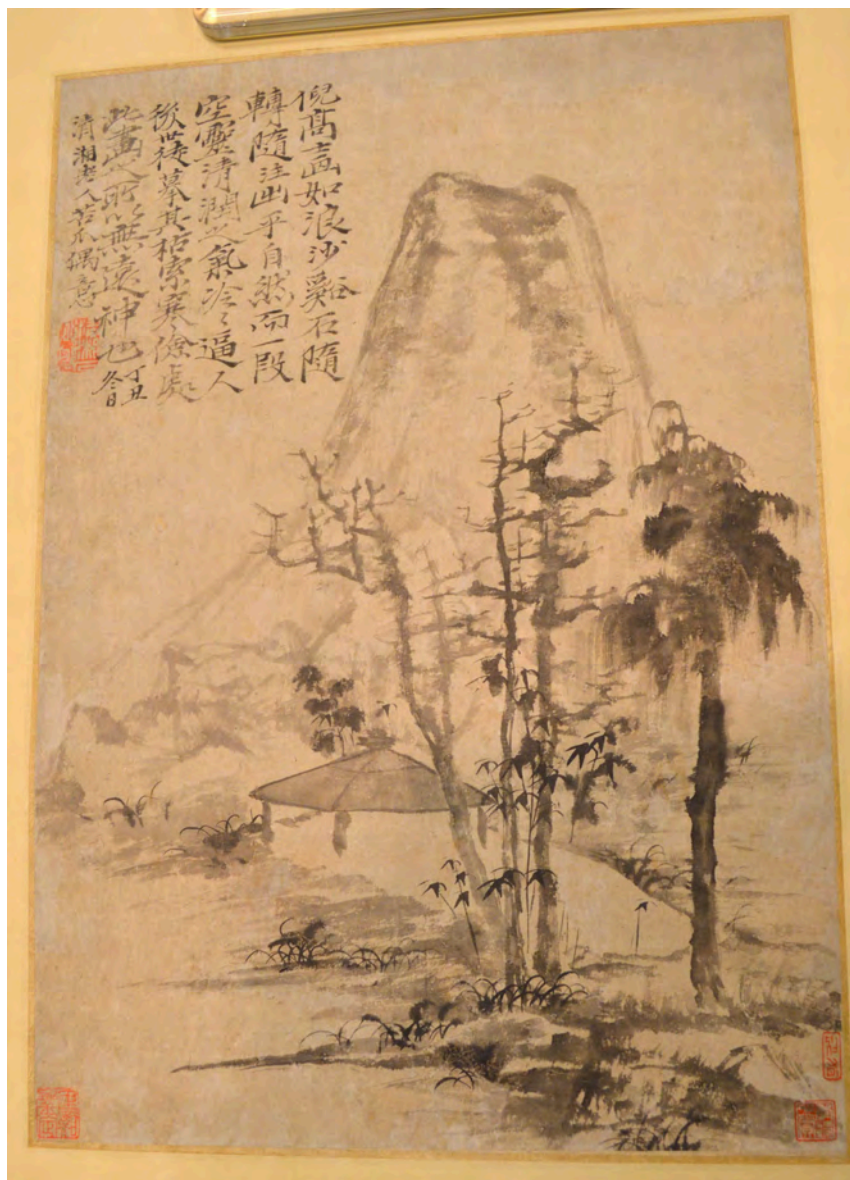 倪高士畫如浪沙谿石隨
轉隨注出乎自然而一段
空靈清潤之氣泠泠逼人
後世徒摹其枯索寒儉處
此畫之所以無遠神也 丁丑
冬日
清湘老人苦瓜偶意